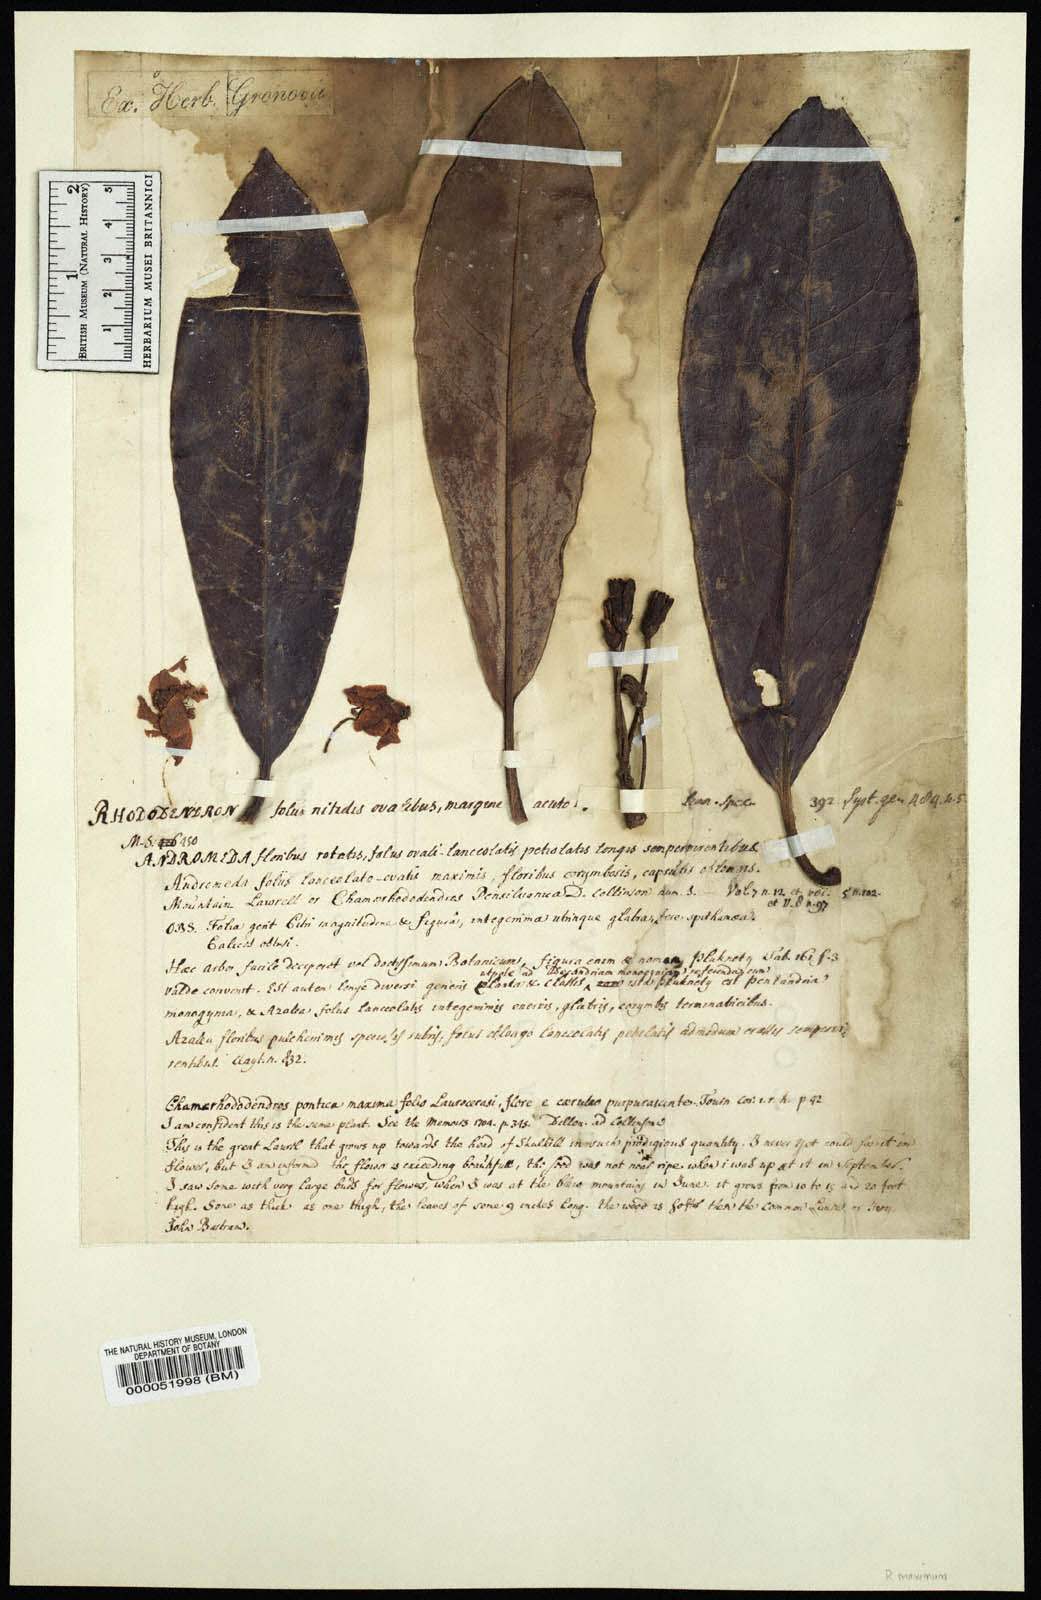 Ex. Herb. Gronovii
BRITISH MUSEUM (NATURAL HISTORY)
HERBARIUM MUSEI BRITANNICI
1 2
1 2 3 4 5
RHODODENDRON foliis nitidis ovalibus, margine acuto. Linn. Spec. 392. Syst. gen. 489. n. 5
M.S. 450
ANDROMEDA floribus rotatis, foliis ovali-lanceolatis petiolatis longis sempervirentibus
Andromeda foliis lanceolato-ovatis maximis, floribus corymbosis, capsulis oblongis.
Mountain Lawrell or Chamærhododendros Pensilvanica D. Collinson num. 3. — Vol. 7 n. 12 et vol. 5 n. 102.
et V. 8 n. 97
OBS. Folia gerit Citri magnitudine & figura, integerrima utrinque glabra, fere spithamæa.
Calices obtusi.
Hæc arbor facile deciperet vel doctissimum Botanicum, figura enim & nomen Pluknety Tab. 161 f. 3
utpote ad Decandriam monogyniam referendum
valde convenit. Est autem longe diversi generis planta & classis, ista Pluknety est pentandria
monogyna, & Azalea foliis lanceolatis integerrimis enerviis, glabris, corymbis terminatricibus.
Azalea floribus pulcherrimis speciosis rubris, foliis oblongo lanceolatis petiolatis admodum crassis sempervi-
rentibus. Clayt. n. 832.
Chamærhododendros pontica maxima folio Laurocerasi, flore e cæruleo purpurascente. Tourn. Cor. i. r. h. p 42
I am confident this is the same plant. See the Memoirs 1704. p. 345. Dillen. ad Collinson
This is the great Lawrel that grows up towards the head of Skulkill in such prodigious quantity. I never yet could see it in
flower, but I am informed the flower is exceeding beautifull, the seed was not near ripe when i was up at it in September.
I saw some with very large buds for flower, when I was at the blew mountains in June. it grows from 10 to 15 and 20 foot
high. Some as thick as one thigh, the leaves of some 9 inches long. the wood is softer then the common Laurel or Ivory.
John Bartram.
THE NATURAL HISTORY MUSEUM, LONDON
DEPARTMENT OF BOTANY
000051998 (BM)
R maximum